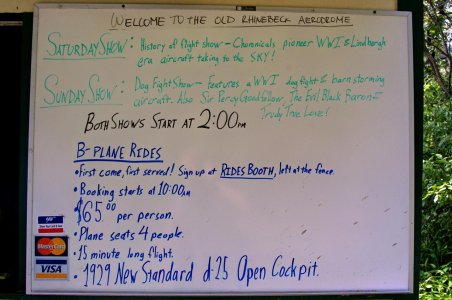 WELCOME TO THE OLD RHINEBECK AERODROME
SATURDAY SHOW: History of flight show - Chronicals pioneer WWI & Lindbergh
era aircraft taking to the SKY!
SUNDAY SHOW: Dog Fight Show - Features a WWI dogfight & barn storming
aircraft. Also Sir Percy Goodfellow, The Evil Black Baron &
Trudy True Love!
BOTH SHOWS START AT 2:00PM
B-PLANE RIDES
• First come, first served! Sign up at RIDES BOOTH, left at the fence.
• Booking starts at 10:00am
• $65.00 per person.
• Plane seats 4 people.
• 15 minute long flight.
• 1929 New Standard d-25 Open Cockpit.
MasterCard
VISA